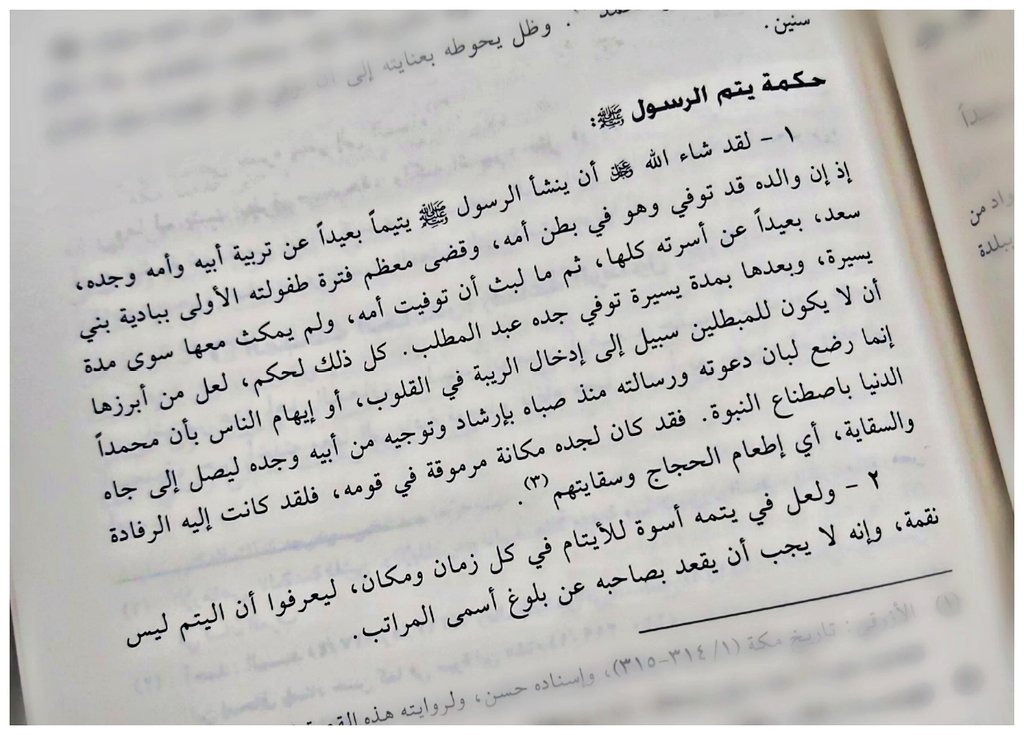 وظل يحوطه بعنايته إلى أن
سنين.
حكمة يتم الرسول ﷺ:
١ - لقد شاء الله ﷻ أن ينشأ الرسول ﷺ يتيماً بعيداً عن تربية أبيه وأمه وجده،
إذ إن والده قد توفي وهو في بطن أمه، وقضى معظم فترة طفولته الأولى ببادية بني
سعد، بعيداً عن أسرته كلها، ثم ما لبث أن توفيت أمه، ولم يمكث معها سوى مدة
يسيرة، وبعدها بمدة يسيرة توفي جده عبد المطلب. كل ذلك لحكم، لعل من أبرزها
أن لا يكون للمبطلين سبيل إلى إدخال الريبة في القلوب، أو إيهام الناس بأن محمداً
إنما رضع لبان دعوته ورسالته منذ صباه بإرشاد وتوجيه من أبيه وجده ليصل إلى جاه
الدنيا باصطناع النبوة. فقد كان لجده مكانة مرموقة في قومه، فلقد كانت إليه الرفادة
والسقاية، أي إطعام الحجاج وسقايتهم(٣).
٢ - ولعل في يتمه أسوة للأيتام في كل زمان ومكان، ليعرفوا أن اليتم ليس
نقمة، وإنه لا يجب أن يقعد بصاحبه عن بلوغ أسمى المراتب.
(١) الأزرقي: تاريخ مكة (١/ ٣١٤-٣١٥)، وإسناده حسن، ولروايته هذه
واد من
ببلدة